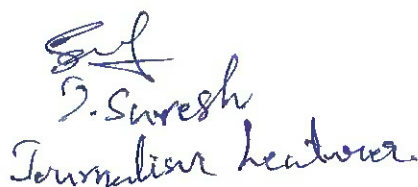 D. Suresh
Journalism Lecturer.